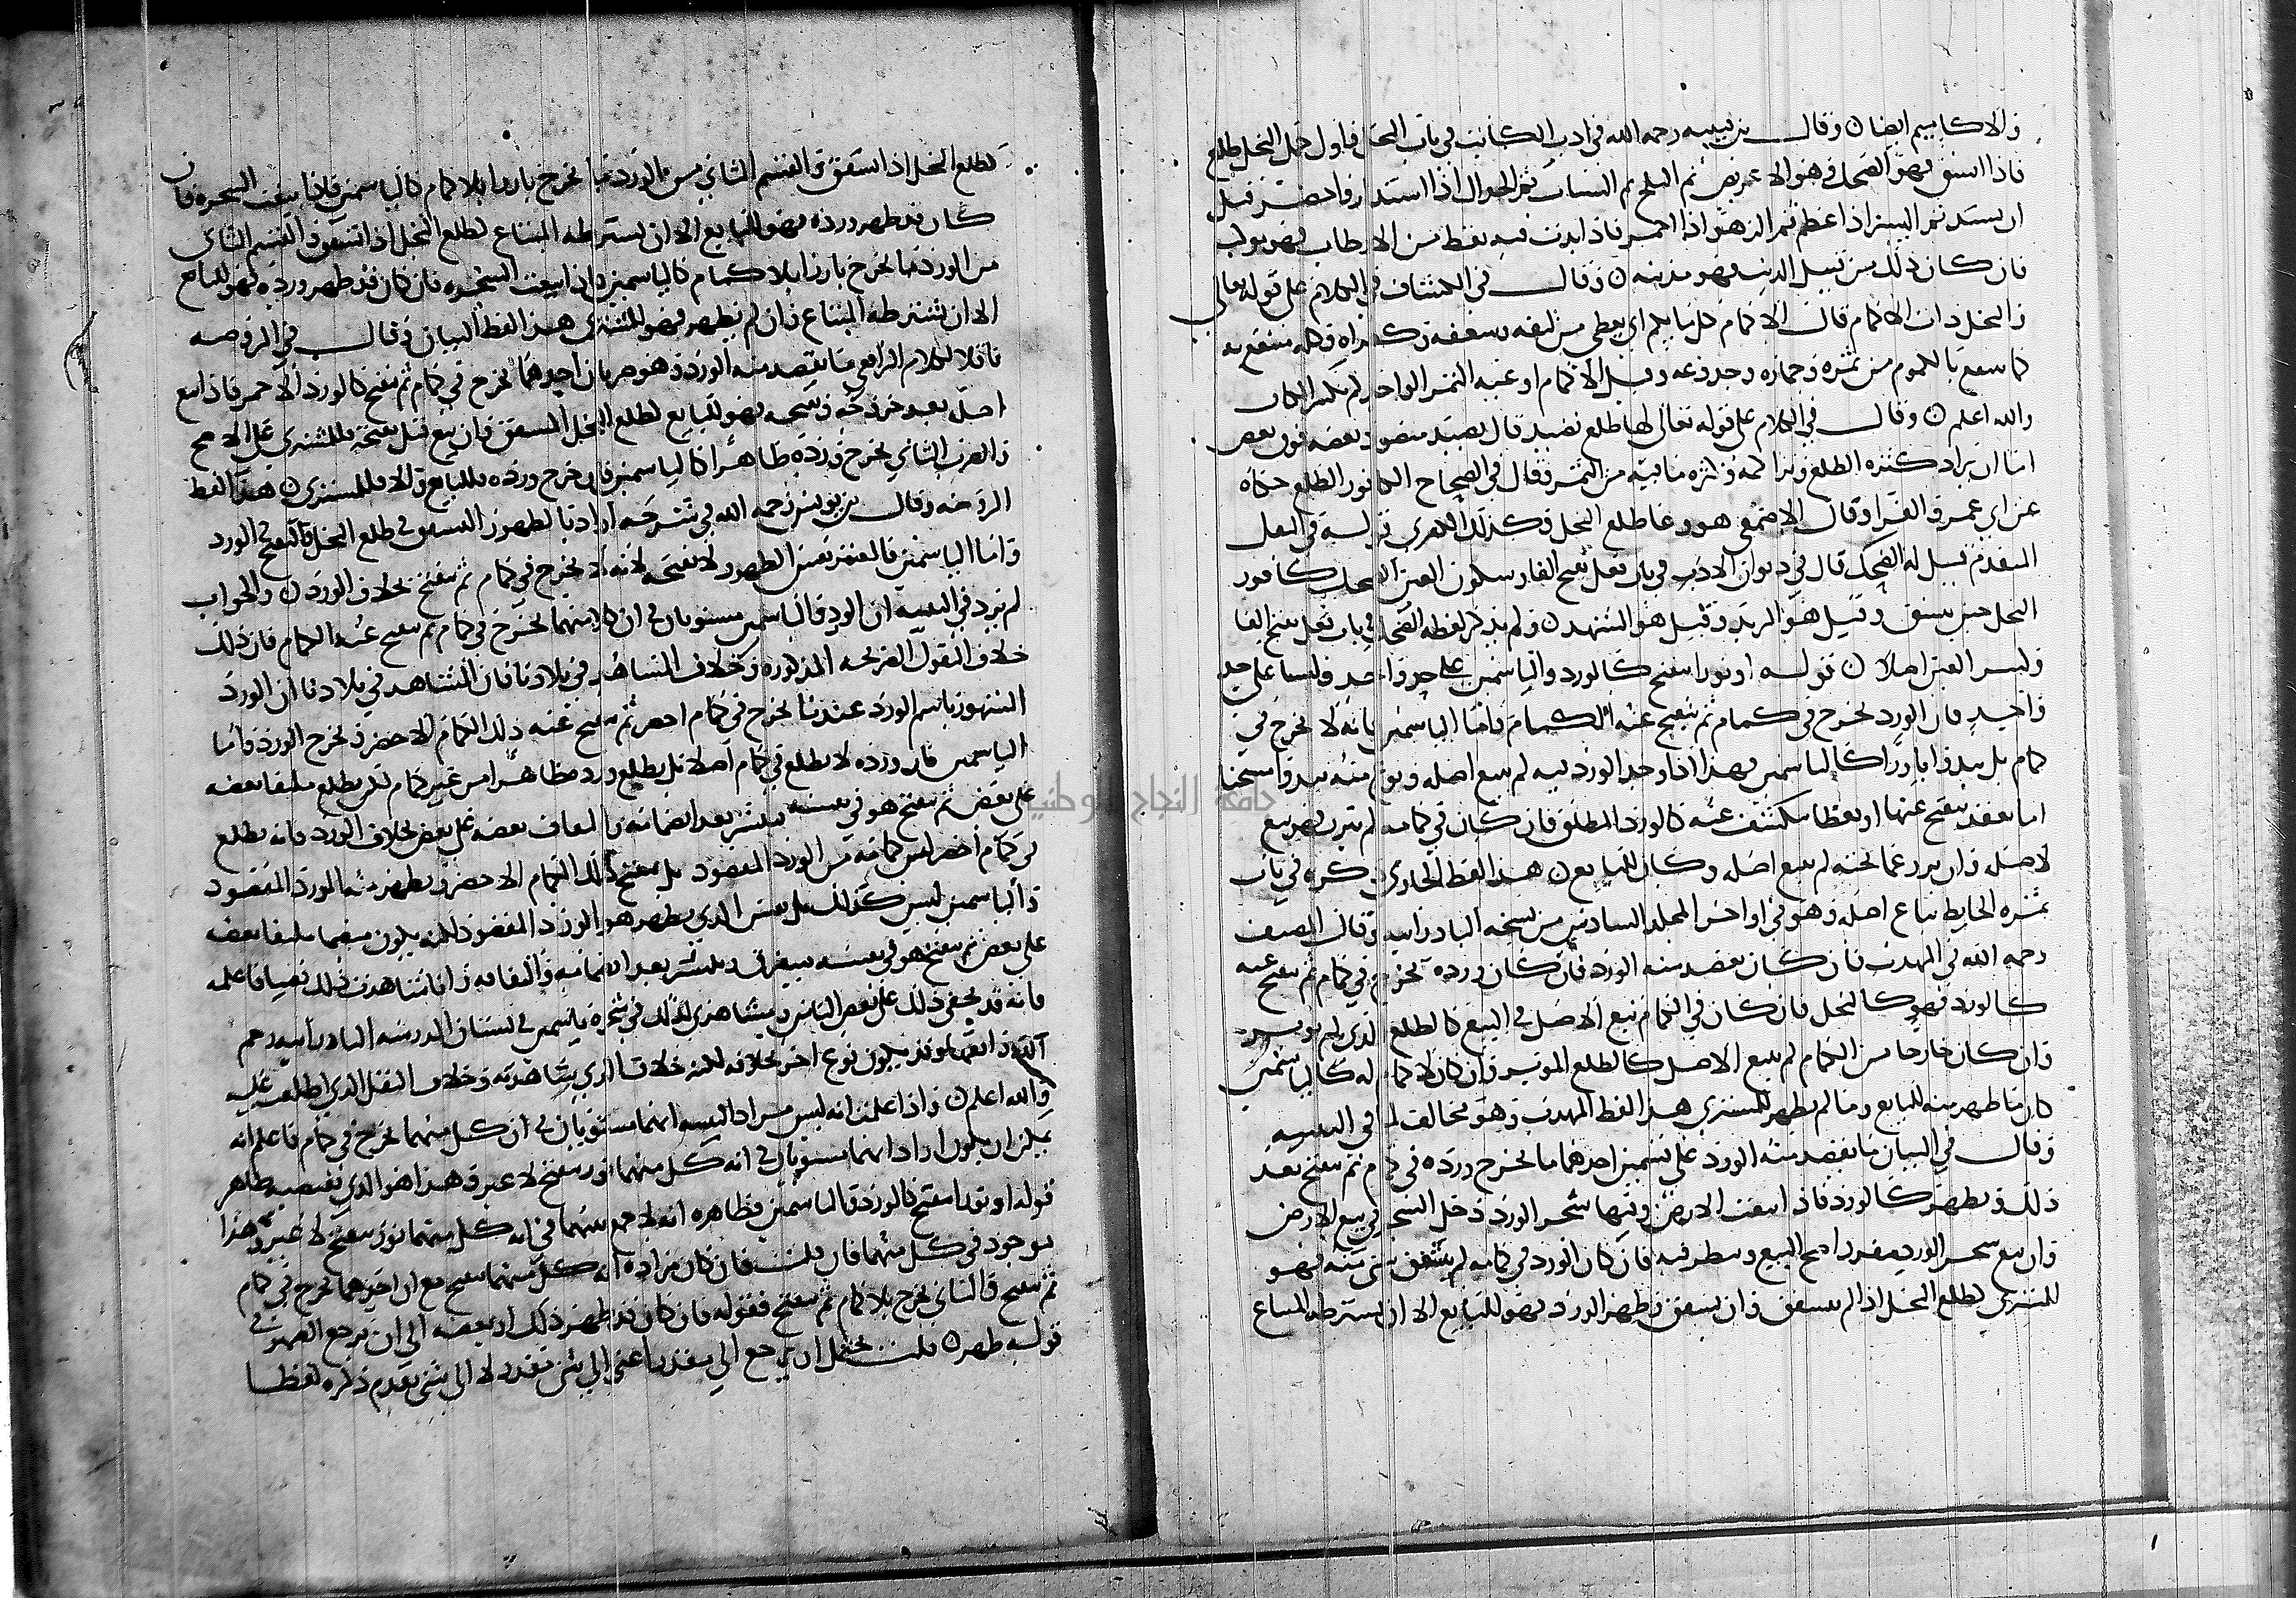 والاكاميم ايضا ٥ وقال بن قتيبه رحمه الله في ادب الكاتب في باب النخل فاول حمل النخل طلع
فاذا انشق فهو الضحك وهو الاغريض ثم البلح ثم السياب ثم الجدال اذا استدار واخضر قبل
ان يشتد ثم البسر اذا عظم ثم الزهو اذا احمر فاذا بدت فيه نقط من الارطاب فهو موكت
فان كان ذلك من قبل الذنب فهو مذنبه ٥ وقال في الكشاف في الكلام على قوله تعالى
والنخل ذات الاكمام قال الاكمام كل ما يكم اي يغطى من ليفه وسعفه وكفراه وكله منتفع به
كما ينتفع بالمكموم من ثمره وجماره وجذوعه وقيل الاكمام اوعيه الثمر الواحد كم بكسر الكاف
والله اعلم ٥ وقال في الكلام على قوله تعالى لها طلع نضيد قال نضيد منضود بعضه فوق بعض
اما ان يراد كثره الطلع وتراكمه وكثره ما فيه من الثمر وقال في الصحاح الكافور الطلع حكاه
عن ابي عمرو الفرا وقال الاصمعي هو وعا طلع النخل وكذلك الكفرى قوله في النقل
المتقدم قيل له الضحك قال في ديوان الادب في باب فعل بفتح الفا وسكون العين الضحك كافور
النخل حين ينشق وقيل هو الزبد وقيل هو الشهد ٥ ولم يذكر لفظه الضحك في باب فعل بفتح الفا
وكسر العين اصلا ٥ قوله او نورا يتفتح كالورد والياسمين على حد واحد وليسا على حد
واحد فان الورد يخرج في كمام ثم يتفتح عنه الكمام واما الياسمين فانه لا يخرج في
كمام بل يبدو بارزا كالياسمين فهذا اذا وجد الورد فيه لم يتبع اصله ونوع منه يبدو
اما بعقد يتفتح عنها او بغطا ينكشف عنه كالورد المطلق فان كان في كمامه لم يبرز فهو تبع
لاصله وان برز عما يجنه لم يتبع اصله وكان للبايع ٥ هذا لفظ الحاوي ذكره في باب
ثمره الحايط يباع اصله وهو في اواخر المجلد السادس من نسخه البادرايه وقال المصنف
رحمه الله في المهذب فان كان يقصد منه الورد فان كان ورده يخرج في كمام ثم يتفتح عنه
كالورد فهو كالنخل فان كان في الكمام تبع الاصل في البيع كالطلع الذي لم يوبر
وان كان خارجا من الكمام لم يتبع الاصل كالطلع الموبر وان كان لا كمام له كالياسمين
كان ما ظهر منه للبايع وما لم يظهر للمشتري هذا لفظ المهذب وهو مخالف لما في التنبيه
وقال في البيان ما يقصد منه الورد على قسمين احدهما ما يخرج ورده في كمام ثم يتفتح بعد
ذلك ويظهر كالورد فاذا ابيعت الارض وفيها شجر الورد دخل الشجر في بيع الارض
وان بيع شجر الورد مفردا صح البيع ونظر فيه فان كان الورد في كمامه لم يتفتح شي منه فهو
للمشتري كطلع النخل اذا لم يتشقق وان تشقق وظهر الورد فهو للبايع الا ان يشترطه المبتاع
كطلع النخل اذا تشقق والقسم الثاني من الورد ما يخرج بارزا بلا كمام كالياسمين فاذا بيعت الشجره فان
كان قد ظهر ورده فهو للبايع الا ان يشترطه المبتاع كطلع النخل اذا تشقق والقسم الثاني
من الورد ما يخرج بارزا بلا كمام كالياسمين فاذا ابيعت الشجره فان كان قد ظهر ورده فهو للبايع
الا ان يشترطه المبتاع وان لم يظهر فهو للمشتري هذا لفظ البيان وقال في الروضه
ناقلا لكلام الرافعي ما يقصد منه الورد وهو ضربان احدهما يخرج في كمام ثم يتفتح كالورد الاحمر فاذا بيع
اصله بعد خروجه وتفتحه فهو للبايع كطلع النخل المتشقق وان بيع قبل تفتحه فللمشتري على الاصح
والضرب الثاني يخرج ورده ظاهرا كالياسمين فان خرج ورده فللبايع والا فللمشتري ٥ هذا لفظ
الروضه وقال بن يونس رحمه الله في شرحه ارادنا بالظهور التشقق في طلع النخل والتفتح في الورد
واما الياسمين فالمعتبر نفس الظهور لا تفتحه لانه لا يخرج في كمام ثم يتفتح بخلاف الورد ٥ والجواب
لم يرد في التنبيه ان الورد والياسمين مستويان في ان كلا منهما يخرج في كمام ثم يتفتح عنه الكمام فان ذلك
خلاف النقول الصريحه المذكوره وخلاف المشاهد في بلادنا فان المشاهد في بلادنا ان الورد
المشهور باسم الورد عندنا يخرج في كمام اخضر ثم يتفتح عنه ذلك الكمام الاخضر ويخرج الورد واما
الياسمين فان ورده لا يطلع في كمام اصلا بل يطلع ورده ظاهرا من غير كمام لكن يطلع ملتفا بعضه
على بعض ثم يتفتح هو في نفسه وينتشر بعد انضمامه والتفاف بعضه على بعض بخلاف الورد فانه يطلع
في كمام اخضر ليس كمامه من الورد المقصود بل يتفتح ذلك الكمام الاخضر ويظهر منه الورد المقصود
والياسمين ليس كذلك بل نفس الذي يظهر هو الورد المقصود لكنه يكون منضما ملتفا بعضه
على بعض ثم يتفتح هو في نفسه وينتشر بعد انضمامه والتفافه وانا شاهدت ذلك فاعلمه
فانه قد يخفى ذلك على بعض الناس ومشاهدتي لذلك في شجره ياسمين في بستان المدرسه البادرايه رحم
الله واقفها وقد يكون نوع اخر بخلافه لكنه خلاف الذي شاهدته وخلاف النقل الذي اطلعت عليه
والله اعلم ٥ واذا علمت انه ليس مراد التنبيه انهما مستويان في ان كل منهما يخرج في كمام فاعلم انه
يمكن ان يكون اراد انهما مستويان في انه كل منهما نور يتفتح لا غير وهذا هو الذي يقتضيه ظاهر
قوله او نورا يتفتح كالورد والياسمين فظاهره انه لا جمع بينهما في انه كل منهما نور يتفتح لا غير وهذا
موجود في كل منهما فان قلت فان كان مراده انه كل منهما يتفتح مع ان احدهما يخرج في كمام
ثم يتفتح والثاني يخرج بلا كمام ثم يتفتح فقوله فان كان قد ظهر ذلك او بعضه الى ان يرجع الضمير في
قوله ظهر ٥ قلت يحتمل ان يرجع الى مقدر اعني الى شي مقدر لا الى شي تقدم ذكره لفظا
جامعة النجاح الوطنية